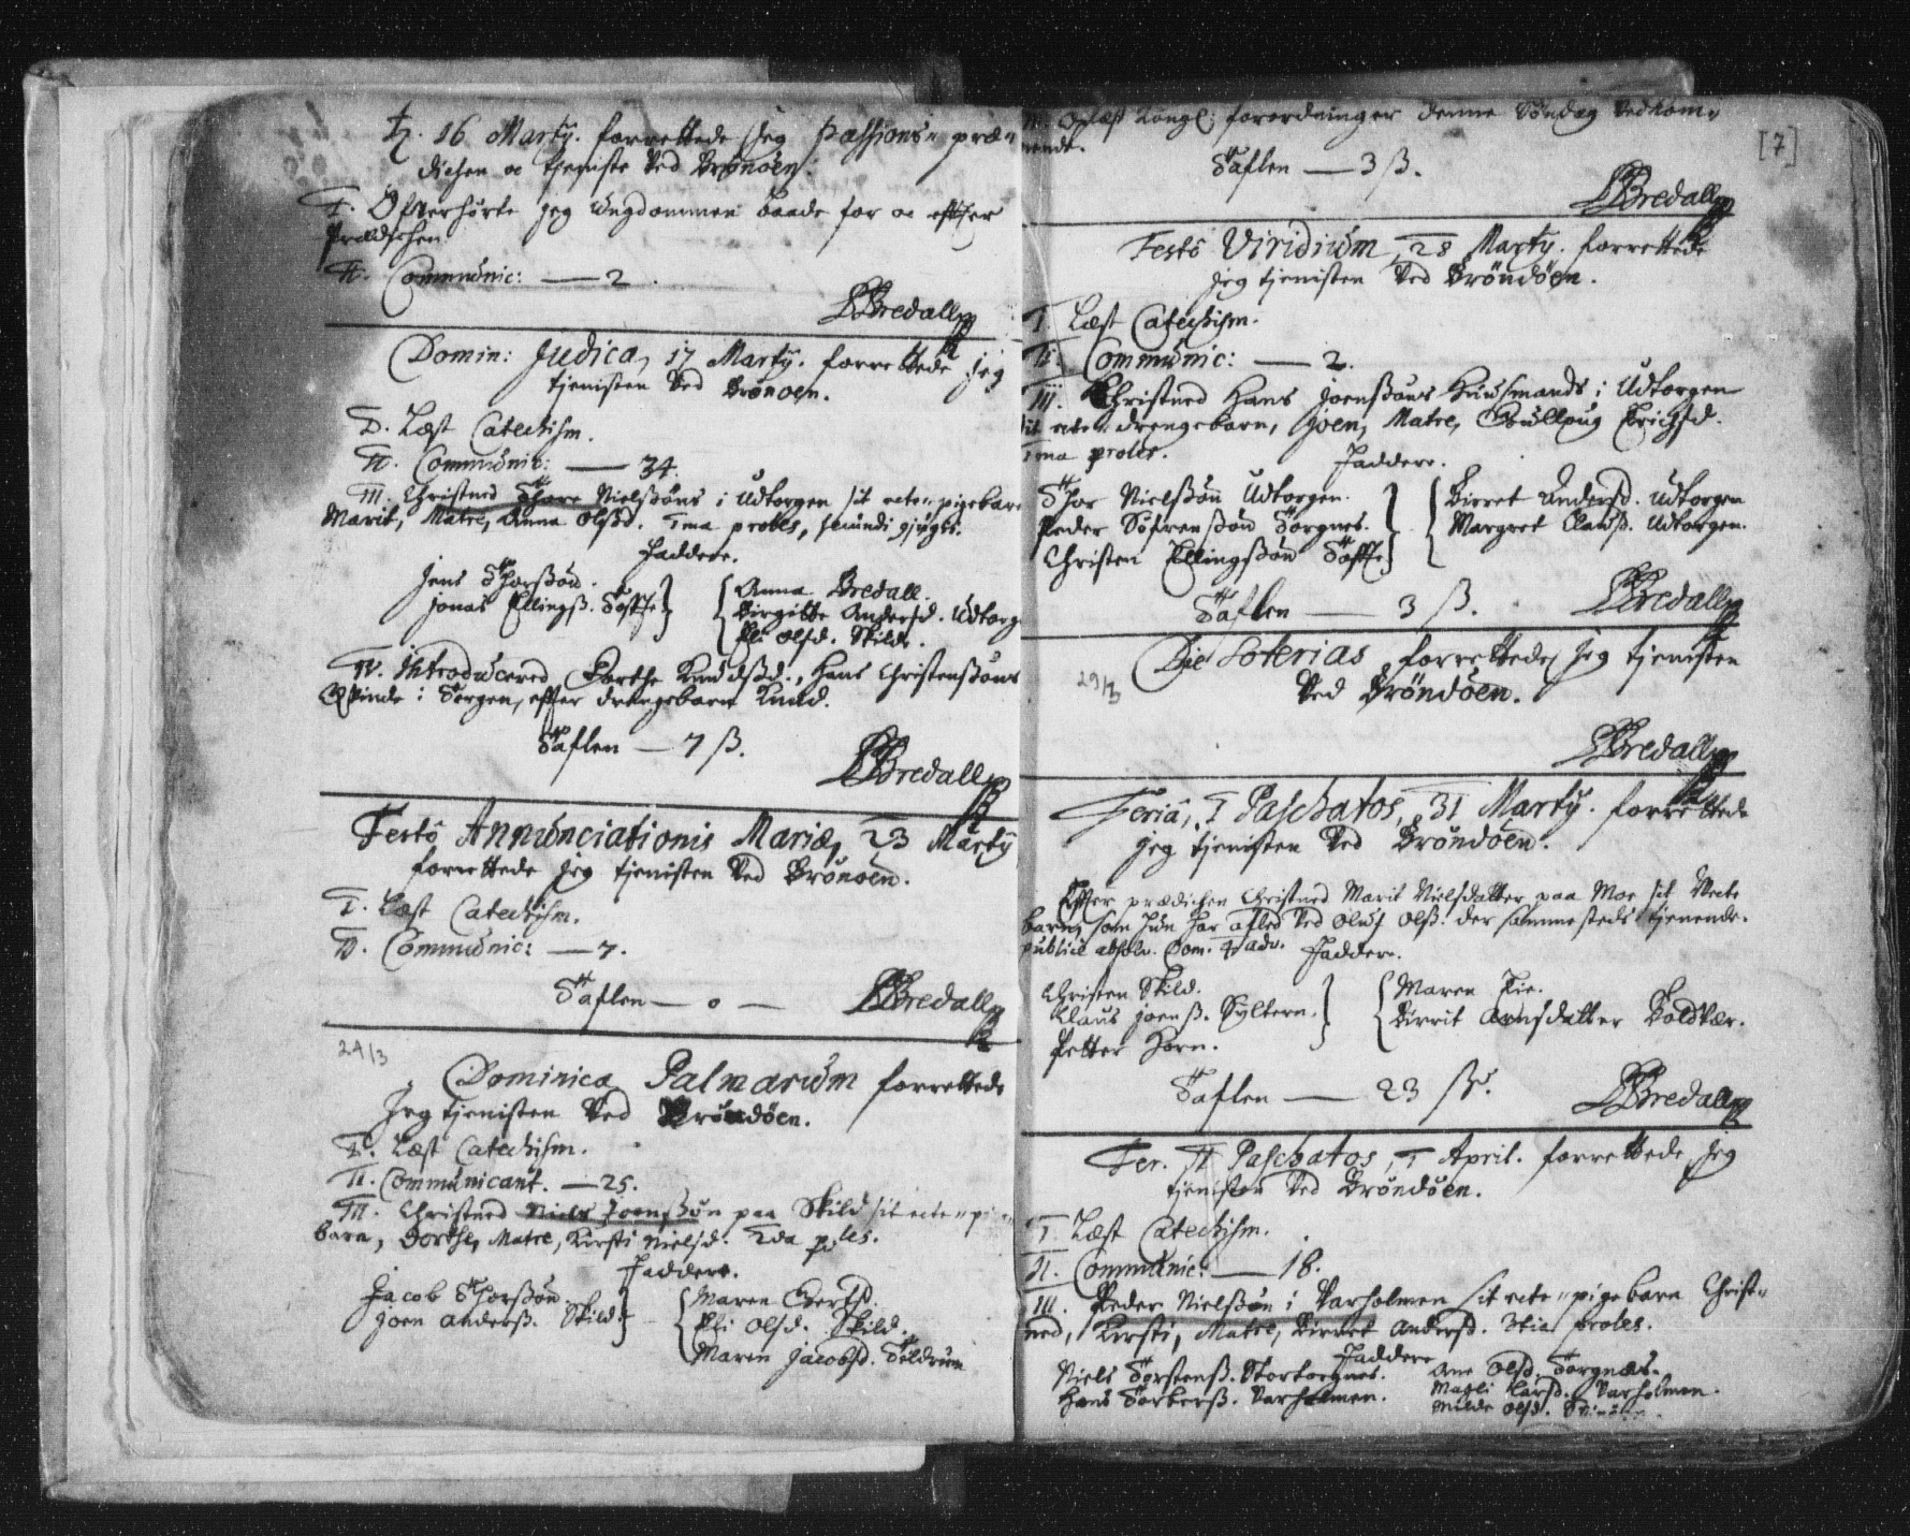 16 Martÿ. forrettede Jeg Passions= præ=
dichen oc tjeniste Ved Brönöen.
I. Ofverhörte jeg Ungdommen baade for oc efter
Prædichen
II. Communic: — 2.
Bredall
Domin: Judica, 17 Martÿ. forrettede jeg
tjenisten Ved Brönöen.
I. Læst Catechism.
II. Communic: — 34.
III. Christned Thore Nielssöns i Udtorgen sit ecte=pigebarn
Marit, Matre, Anna Olssd. Ima proles, secundi gjugts.
Faddere.
Jens Thorssön.
Jonas Ellingss. Tofte
Anna Bredall.
Birgitte Andersd. Udtorg
Eli Olsd. Skild.
IV. Introducered Dorthe Knudssd., Hans Christenssöns
Qvinde i Torgen, efter drengebarn Knud.
Taflen — 7 ß.
Bredall
Festô Annunciationis Mariæ, 23 Martÿ
forrettede jeg tjenisten Ved Brönöen.
I. Læst Catechism.
II. Communic: — 7.
Taflen — 0 —
Bredall
24/3
Dominica Palmarum forrettede
Jeg tjenisten Ved Bröndöen.
I. Læst Catechism.
II. Communicant. — 25.
III. Christned Niels Joenssön paa Skild sit ecte=
barn, Dorthe, Matre, Kirsti Nielsd. IIda ples.
Faddere.
Jacob Thorssön.
Joen Anderss. Skild.
Maren Evertsd.
Eli Olsd. Skild.
Maren Jacobsd. Tildrum
[7]
Oplæst Kongl: forordninger denne Söndag Vedkom=
mende.
Taflen — 3 ß.
Bredall
Festô Viridium, 28 Martÿ. forrettede
jeg tjenisten Ved Bröndöen.
I. Læst Catechism.
II. Communic: — 2.
III. Christned Hans Joenssöns Huusmands i Udtorgen
sit ecte=drengebarn, Joen, Matre, Gullaug Erichsd.
Ima proles.
Faddere.
Thor Nielssön Udtorgen.
Peder Söfrenssön Torgnes.
Christen Ellingssön Tofte
Birret Andersd. Udtorgen
Margret Clausd. Udtorgen.
Taflen — 3 ß.
Bredall
29/3
Die Soterias forrettede Jeg tjenisten
Ved Bröndöen.
Bredall
Feriâ, I Paschatos, 31 Martÿ. forrettede
jeg tjenisten Ved Bröndöen.
Efter prædichen Christned Marit Nielsdatter paa Moe sit Uecte
barn, som hun har afled Ved Oluf Olss. der sammesteds tjenende.
publice absolv. Dom. 4 adv.
Faddere.
Christen Skild.
Claus Joenss. Sÿltern.
Petter Horn.
Maren Tie.
Birrit Arnsdatter Toldvær.
Taflen — 23 ß.
Bredall
Fer. II Paschatos, I April. forrettede Jeg
tjenisten Ved Bröndöen.
I. Læst Catechism.
II. Communic: — 18.
III. Peder Nielssön i Varholmen sit ecte=pigebarn Christ=
ned, Kirsti, Matre, Birret Andersd. 3tia proles.
Faddere
Niels Torstenss. Stortorgnes.
Hans Torberss. Varholmen.
Ane Olsd. Torgnæs.
Magli Larsd. Varholmen.
Milde Olsd.